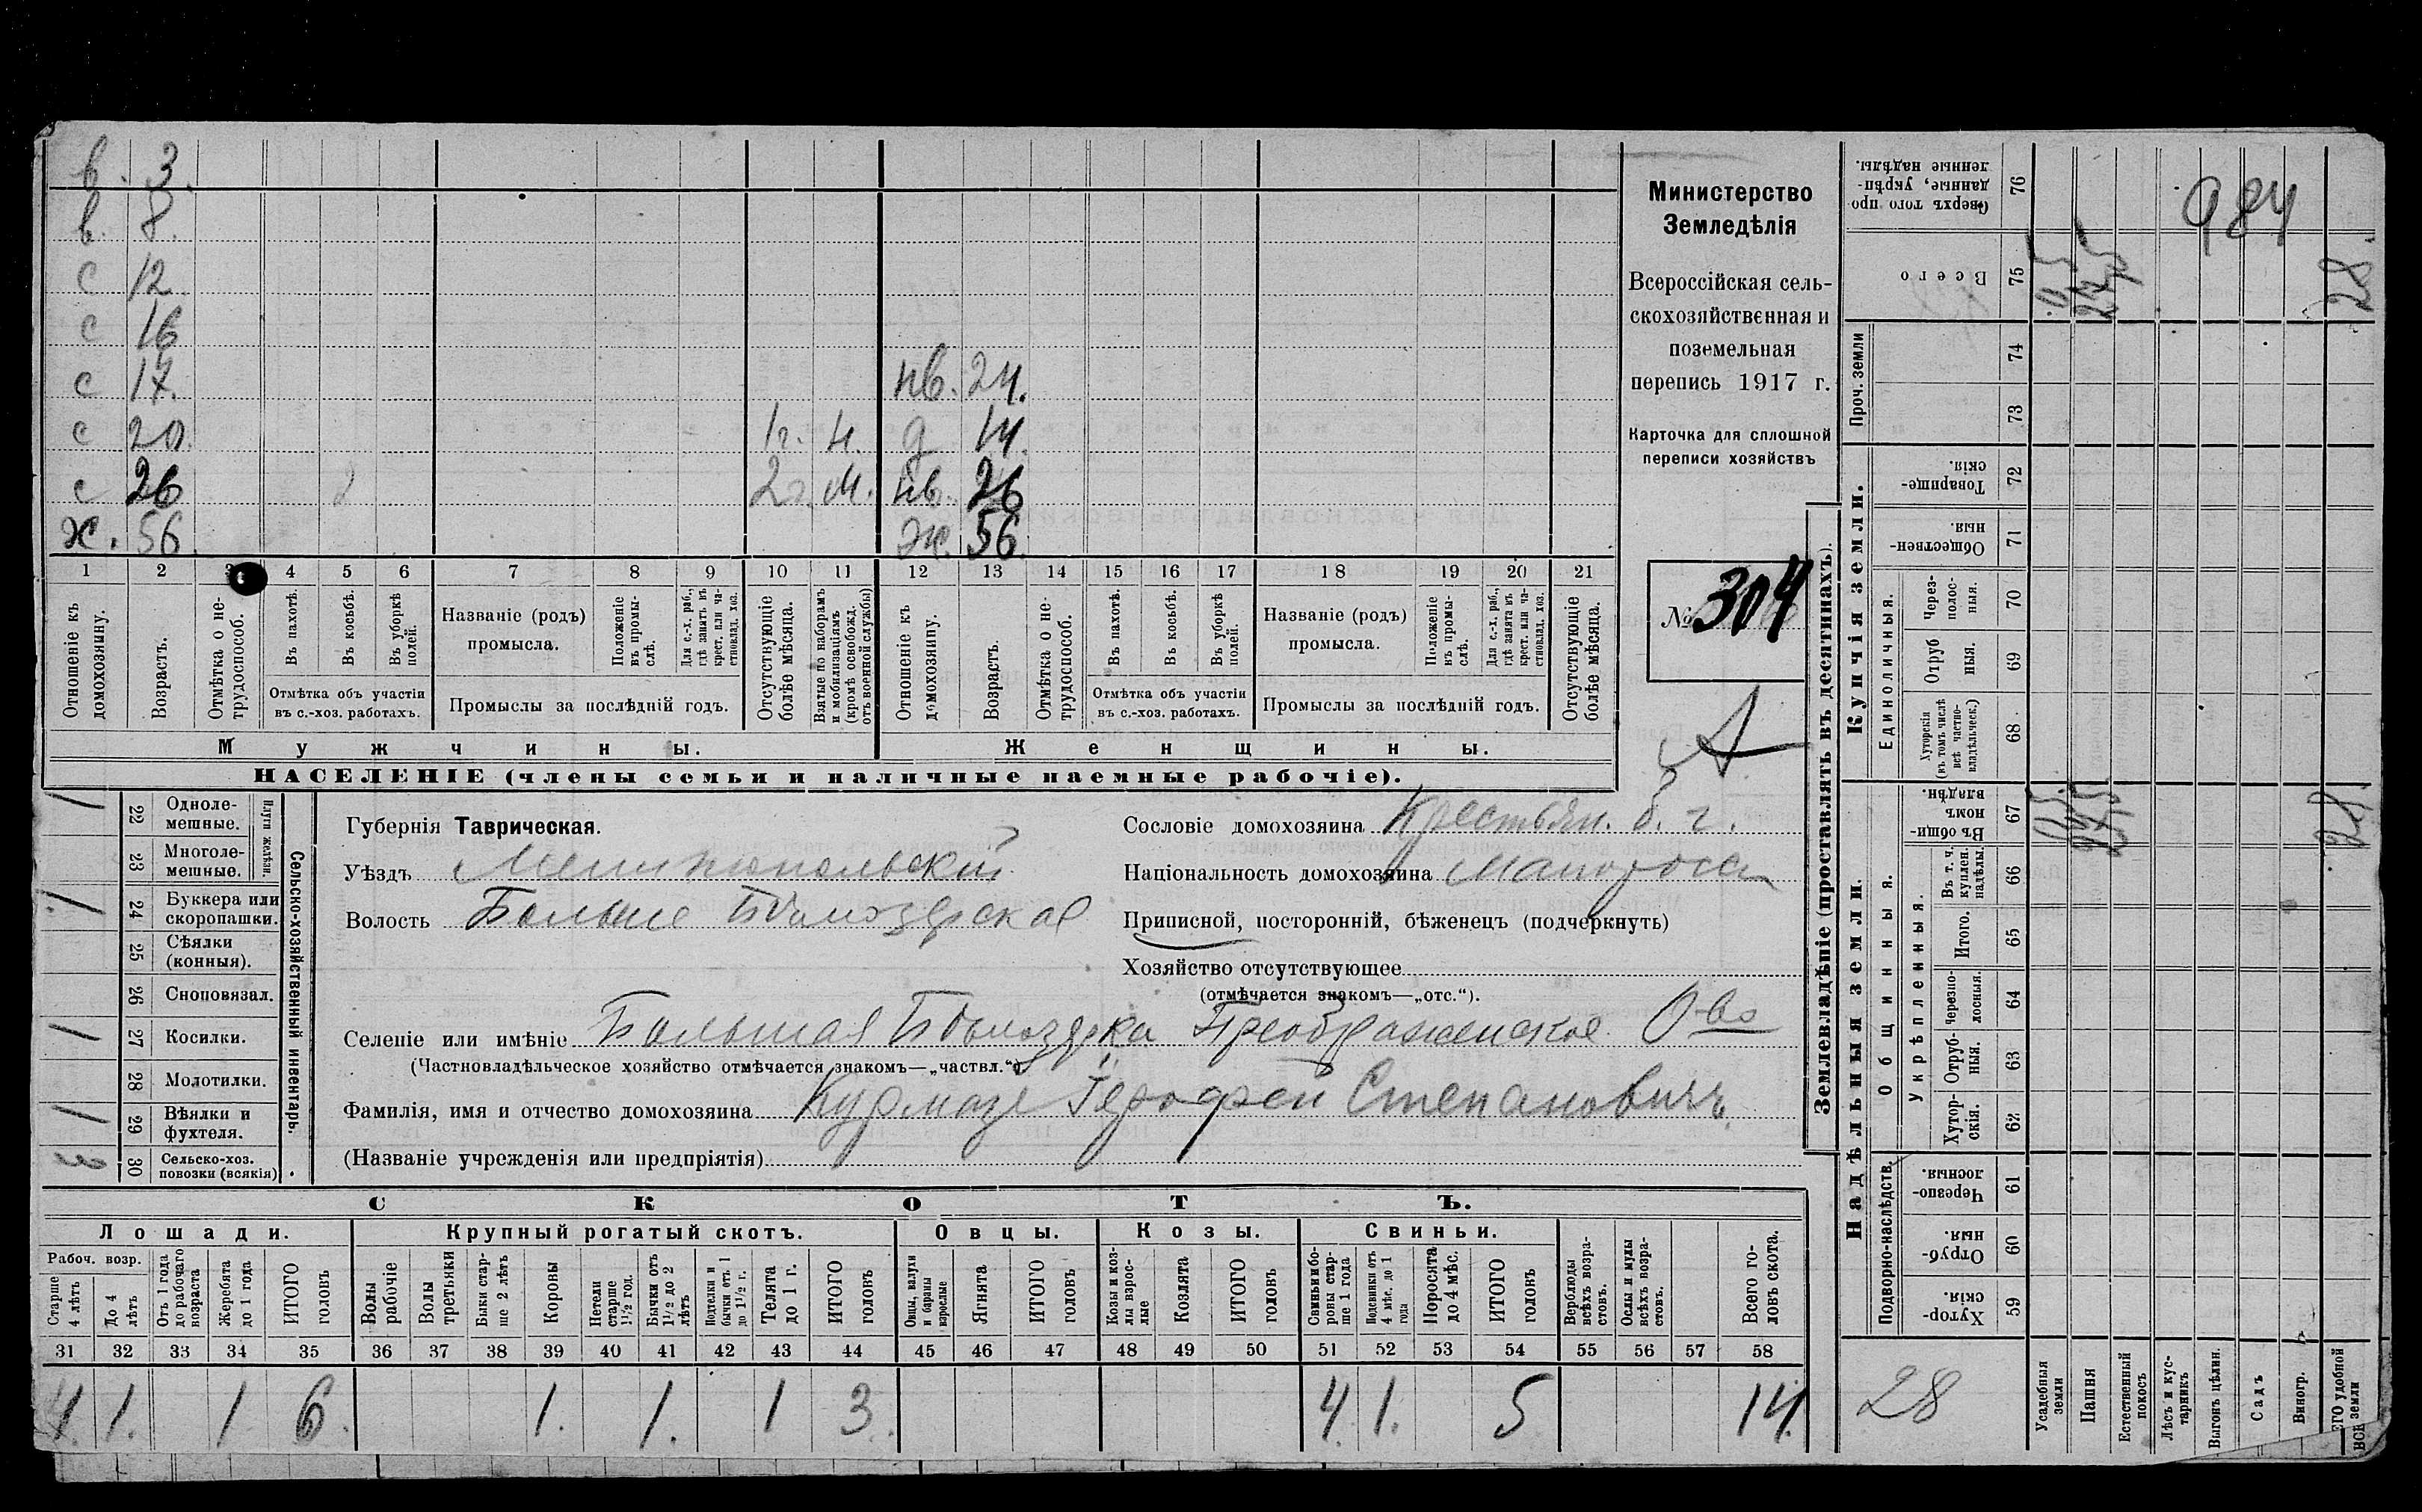 в. 3.
в. 8.
с 12
с 16
с 17. нв. 24.
с 20. 1 г. н. д 14.
с 26 2 г. м. нв. 26
х. 56. ж. 56.
1 2 3 4 5 6 7 8 9 10 11 12 13 14 15 16 17 18 19 20 21
Отношеніе къ домохозяину.
Возрастъ.
Отмѣтка о нетрудоспособ.
Въ пахотѣ.
Въ косьбѣ.
Въ уборкѣ полей.
Отмѣтка объ участіи въ с.-хоз. работахъ.
Названіе (родъ) промысла.
Положеніе въ промыслѣ.
Для с.-х. раб., гдѣ занятъ въ крест. или частновлад. хоз.
Промыслы за послѣдній годъ.
Отсутствующіе болѣе мѣсяца.
Взятые по наборамъ и мобилизаціямъ (кромѣ освобожд. отъ военной службы)
Отношеніе къ домохозяину.
Возрастъ.
Отмѣтка о нетрудоспособ.
Въ пахотѣ.
Въ косьбѣ.
Въ уборкѣ полей.
Отмѣтка объ участіи въ с.-хоз. работахъ.
Названіе (родъ) промысла.
Положеніе въ промыслѣ.
Для с.-х. раб., гдѣ занята въ крест. или частновлад. хоз.
Промыслы за послѣдній годъ.
Отсутствующіе болѣе мѣсяца.
Мужчины. Женщины.
НАСЕЛЕНІЕ (члены семьи и наличные наемные рабочіе).
Министерство
Земледѣлія
Всероссійская сель-
скохозяйственная и
поземельная
перепись 1917 г.
Карточка для сплошной
переписи хозяйствъ
№ 304
А
Сельско-хозяйственный инвентарь.
Плуги желѣзн.
1 22 Одноле-
мешные.
23 Многоле-
мешные.
1 24 Буккера или
скоропашки.
25 Сѣялки
(конныя).
26 Сноповязал.
1 27 Косилки.
28 Молотилки.
1 29 Вѣялки и
фухтеля.
3 30 Сельско-хоз.
повозки (всякія)
Губернія Таврическая.
Уѣздъ Мелитопольскій
Волость Больше Бѣлозерская
Сословіе домохозяина Крестьян. б. г.
Національность домохозяина малоросъ
Приписной, посторонній, бѣженецъ (подчеркнуть)
Хозяйство отсутствующее
(отмѣчается знакомъ—„отс.“).
Селеніе или имѣніе Большая Бѣлозерка Преображенское О-во
(Частновладѣльческое хозяйство отмѣчается знакомъ—„частвл.“)
Фамилія, имя и отчество домохозяина Курмазъ Герофей Степановичъ
(Названіе учрежденія или предпріятія)
СКОТЪ.
Лошади. Крупный рогатый скотъ. Овцы. Козы. Свиньи.
Рабоч. возр.
Старше 4 лѣтъ
До 4 лѣтъ
Отъ 1 года до рабочаго возраста
Жеребята до 1 года
ИТОГО головъ
Волы рабочіе
Волы третьяки
Быки старше 2 лѣтъ
Коровы
Нетели старше 1½ год.
Бычки отъ 1½ до 2 лѣтъ
Подтелки и бычки отъ 1 до 1½ г.
Телята до 1 г.
ИТОГО головъ
Овцы, валухи и бараны взрослые
Ягнята
ИТОГО головъ
Козы и козлы взрослые
Козлята
ИТОГО головъ
Свиньи и боровы старше 1 года
Подсвинки отъ 4 мѣс. до 1 года
Поросята до 4 мѣс.
ИТОГО головъ
Верблюды всѣхъ возрастовъ.
Ослы и мулы всѣхъ возрастовъ.
Всего головъ скота.
31 32 33 34 35 36 37 38 39 40 41 42 43 44 45 46 47 48 49 50 51 52 53 54 55 56 57 58
4. 1. 1 6. 1. 1. 1 3. 4. 1. 5 14.
Землевладѣніе (проставлять въ десятинахъ).
Купчія земли.
Надѣльныя земли.
Сверхъ того проданные, укрѣпленные надѣлы. 76
984
Всего 75 28.
Проч. земли 74
73
Товарищескія. 72
Общественныя. 71
Единоличныя.
Через-полосныя. 70
Отрубныя. 69
Хуторскія (въ томъ числѣ всѣ частновладѣльческ.) 68
Общинныя.
Въ общиномъ владѣн. 67 28.
Укрѣпленныя.
Въ т. ч. куплен. надѣлы. 66
Итого. 65
Черезполосныя. 64
Отрубныя. 63
Хуторскія. 62
Подворно-наслѣдств.
Черезполосныя. 61
Отрубныя. 60
Хуторскія. 59
28
Усадебныя земли
Пашня
Естественный покосъ
Лѣсъ и кустарникъ
Выгонъ цѣлин.
Садъ
Виногр.
ВСЕГО удобной земли